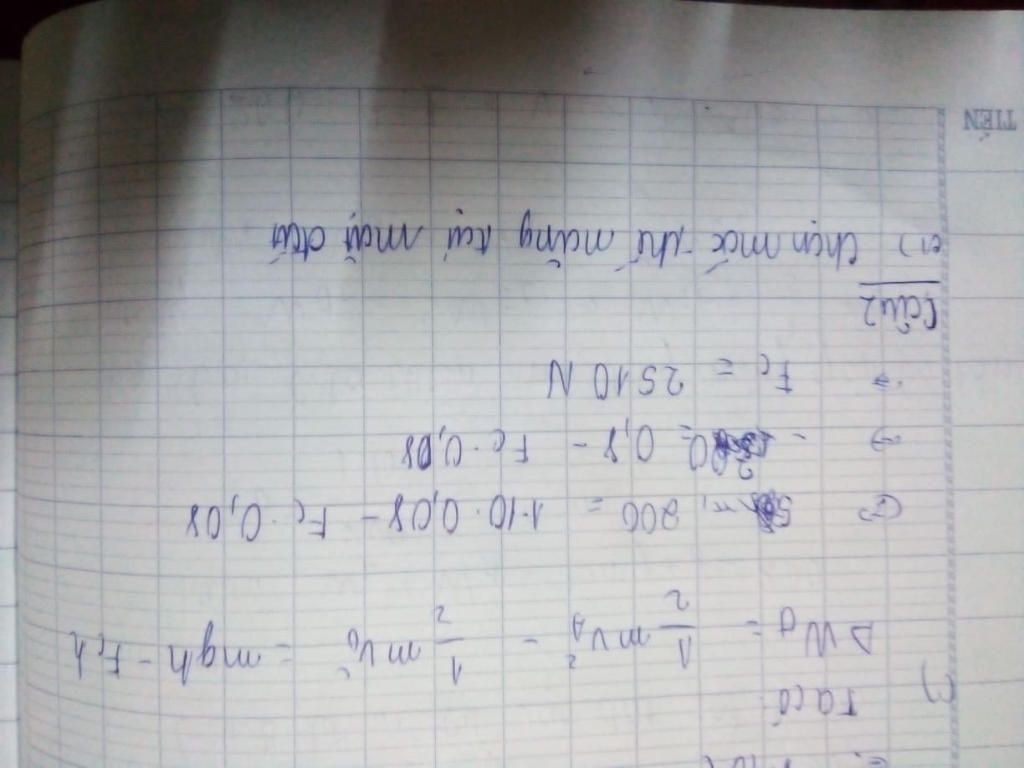 c) Ta có
ΔWđ = 1/2 mv²A - 1/2 mv²0 = mgh - Fc h
200 = 1.10.0,08 - Fc.0,08
200 = 0,8 - Fc.0,08
Fc = 2510 N
Câu 2
a) chọn mốc thế năng tại
TIẾN